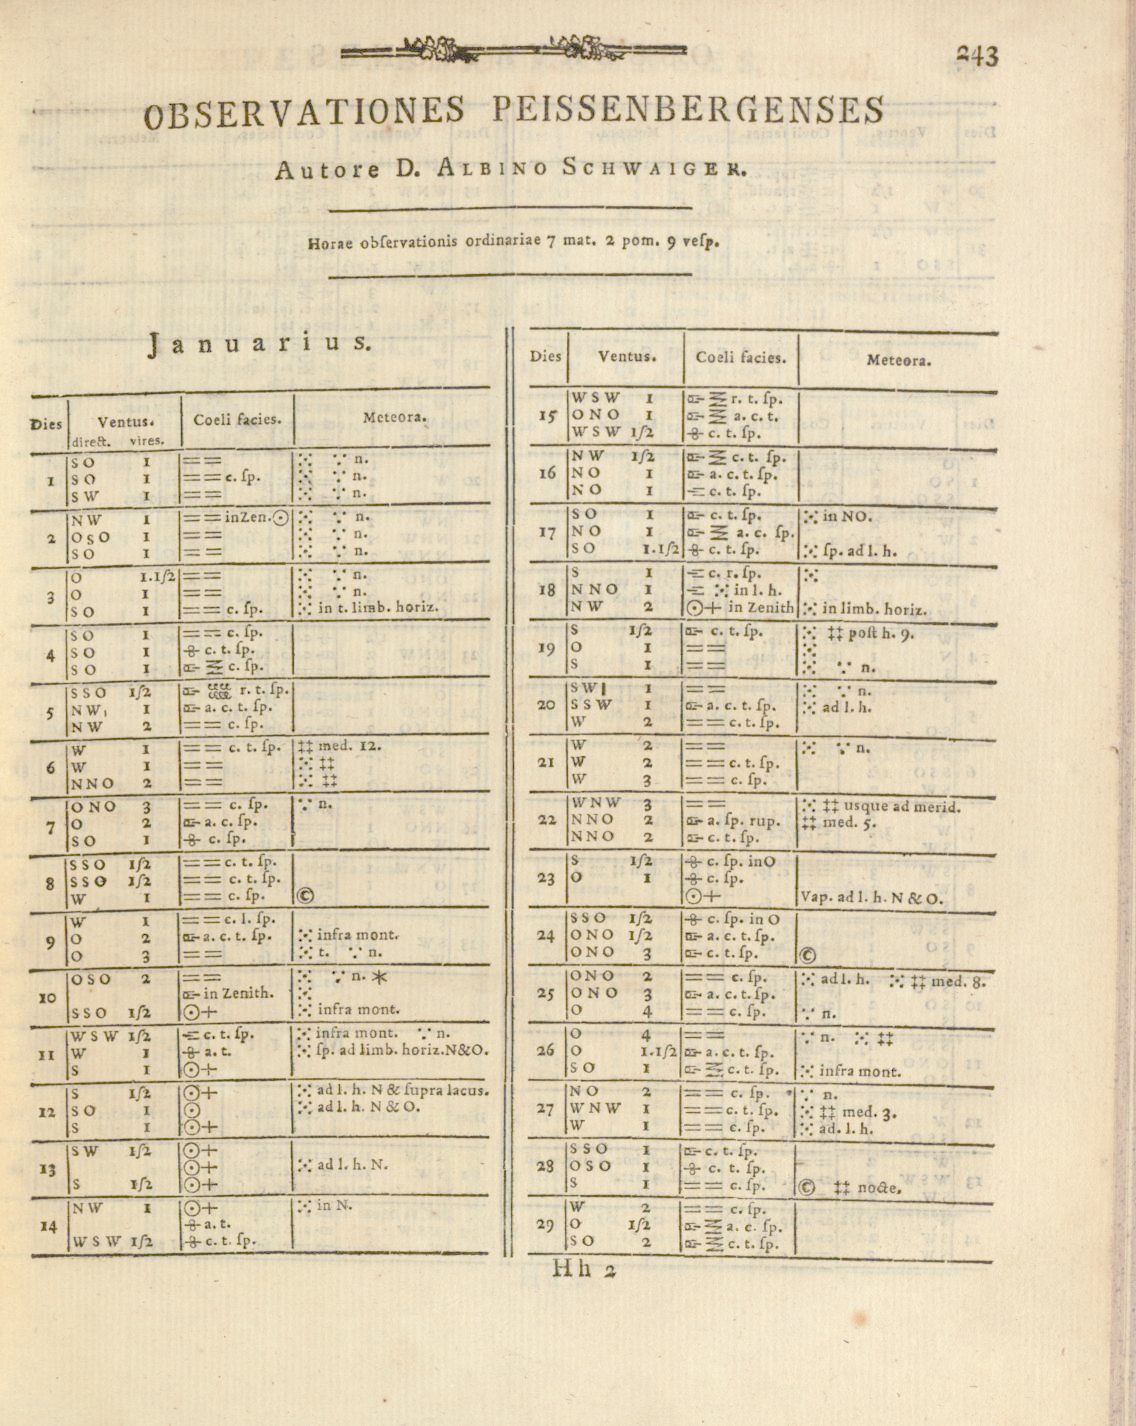 243
OBSERVATIONES PEISSENBERGENSES
Autore D. ALBINO SCHWAIGER.
Horae obſervationis ordinariae 7 mat. 2 pom. 9 veſp.
Januarius.
Dies Ventus. Coeli facies. Meteora.
direct. vires.
SO 1 == ⁙ ∵ n.
1 SO 1 == c. ſp. ⁙ ∵ n.
SW 1 == ⁙ ∵ n.
NW 1 == inZen.☉ ⁙ ∵ n.
2 OSO 1 == ⁙ ∵ n.
SO 1 == ⁙ ∵ n.
O 1.1/2 == ⁙ ∵ n.
3 O 1 == ⁙ ∵ n.
SO 1 == c. ſp. ⁙ in t. limb. horiz.
SO 1 == c. ſp.
4 SO 1 c. t. ſp.
SO 1 c. ſp.
SSO 1/2 r. t. ſp.
5 NW 1 a. c. t. ſp.
NW 2 == c. ſp.
W 1 == c. t. ſp. ‡‡ med. 12.
6 W 1 == ⁙ ‡‡
NNO 2 == ⁙ ‡‡
ONO 3 == c. ſp. ∵ n.
7 O 2 a. c. ſp.
SO 1 c. ſp.
SSO 1/2 == c. t. ſp.
8 SSO 1/2 == c. t. ſp.
W 1 == c. ſp. ©
W 1 == c. l. ſp.
9 O 2 a. c. t. ſp. ⁙ infra mont.
O 3 == ⁙ t. ∵ n.
OSO 2 == ⁙ ∵ n. *
10 in Zenith. ⁙
SSO 1/2 ☉+ ⁙ infra mont.
WSW 1/2 c. t. ſp. ⁙ infra mont. ∵ n.
11 W 1 a. t. ⁙ ſp. ad limb. horiz. N&O.
S 1 ☉+
S 1/2 ☉+ ⁙ ad l. h. N & ſupra lacus.
12 SO 1 ☉ ⁙ ad l. h. N & O.
S 1 ☉+
SW 1/2 ☉+
13 ☉+ ⁙ ad l. h. N.
S 1/2 ☉+
NW 1 ☉+ ⁙ in N.
14 a. t.
WSW 1/2 c. t. ſp.
Dies Ventus. Coeli facies. Meteora.
WSW 1 r. t. ſp.
15 ONO 1 a. c. t.
WSW 1/2 c. t. ſp.
NW 1/2 c. t. ſp.
16 NO 1 a. c. t. ſp.
NO 1 c. t. ſp.
SO 1 c. t. ſp. ⁙ in NO.
17 NO 1 a. c. ſp.
SO 1.1/2 c. t. ſp. ⁙ ſp. ad l. h.
S 1 c. r. ſp. ⁙
18 NNO 1 ⁙ in l. h.
NW 2 ☉+ in Zenith ⁙ in limb. horiz.
S 1/2 c. t. ſp. ⁙ ‡‡ poſt h. 9.
19 O 1 == ⁙
S 1 == ⁙ ∵ n.
SW 1 == ⁙ ∵ n.
20 SSW 1 a. c. t. ſp. ⁙ ad l. h.
W 2 == c. t. ſp.
W 2 == ⁙ ∵ n.
21 W 2 == c. t. ſp.
W 3 == c. ſp.
WNW 3 == ⁙ ‡‡ usque ad merid.
22 NNO 2 a. ſp. rup. ‡‡ med. 5.
NNO 2 c. t. ſp.
S 1/2 c. ſp. inO
23 O 1 c. ſp.
☉+ Vap. ad l. h. N & O.
SSO 1/2 c. ſp. in O
24 ONO 1/2 a. c. t. ſp.
ONO 3 c. t. ſp. ©
ONO 2 == c. ſp. ⁙ ad l. h. ⁙ ‡‡ med. 8.
25 ONO 3 a. c. t. ſp.
O 4 == c. ſp. ∵ n.
O 4 == ∵ n. ⁙ ‡‡
26 O 1.1/2 a. c. t. ſp.
SO 1 c. t. ſp. ⁙ infra mont.
NO 2 == c. ſp. ∵ n.
27 WNW 1 == c. t. ſp. ⁙ ‡‡ med. 3.
W 1 == c. ſp. ⁙ ad. l. h.
SSO 1 c. t. ſp.
28 OSO 1 c. t. ſp.
S 1 == c. ſp. © ‡‡ nocte.
W 2 == c. ſp.
29 O 1/2 a. c. ſp.
SO 2 c. t. ſp.
Hh 2